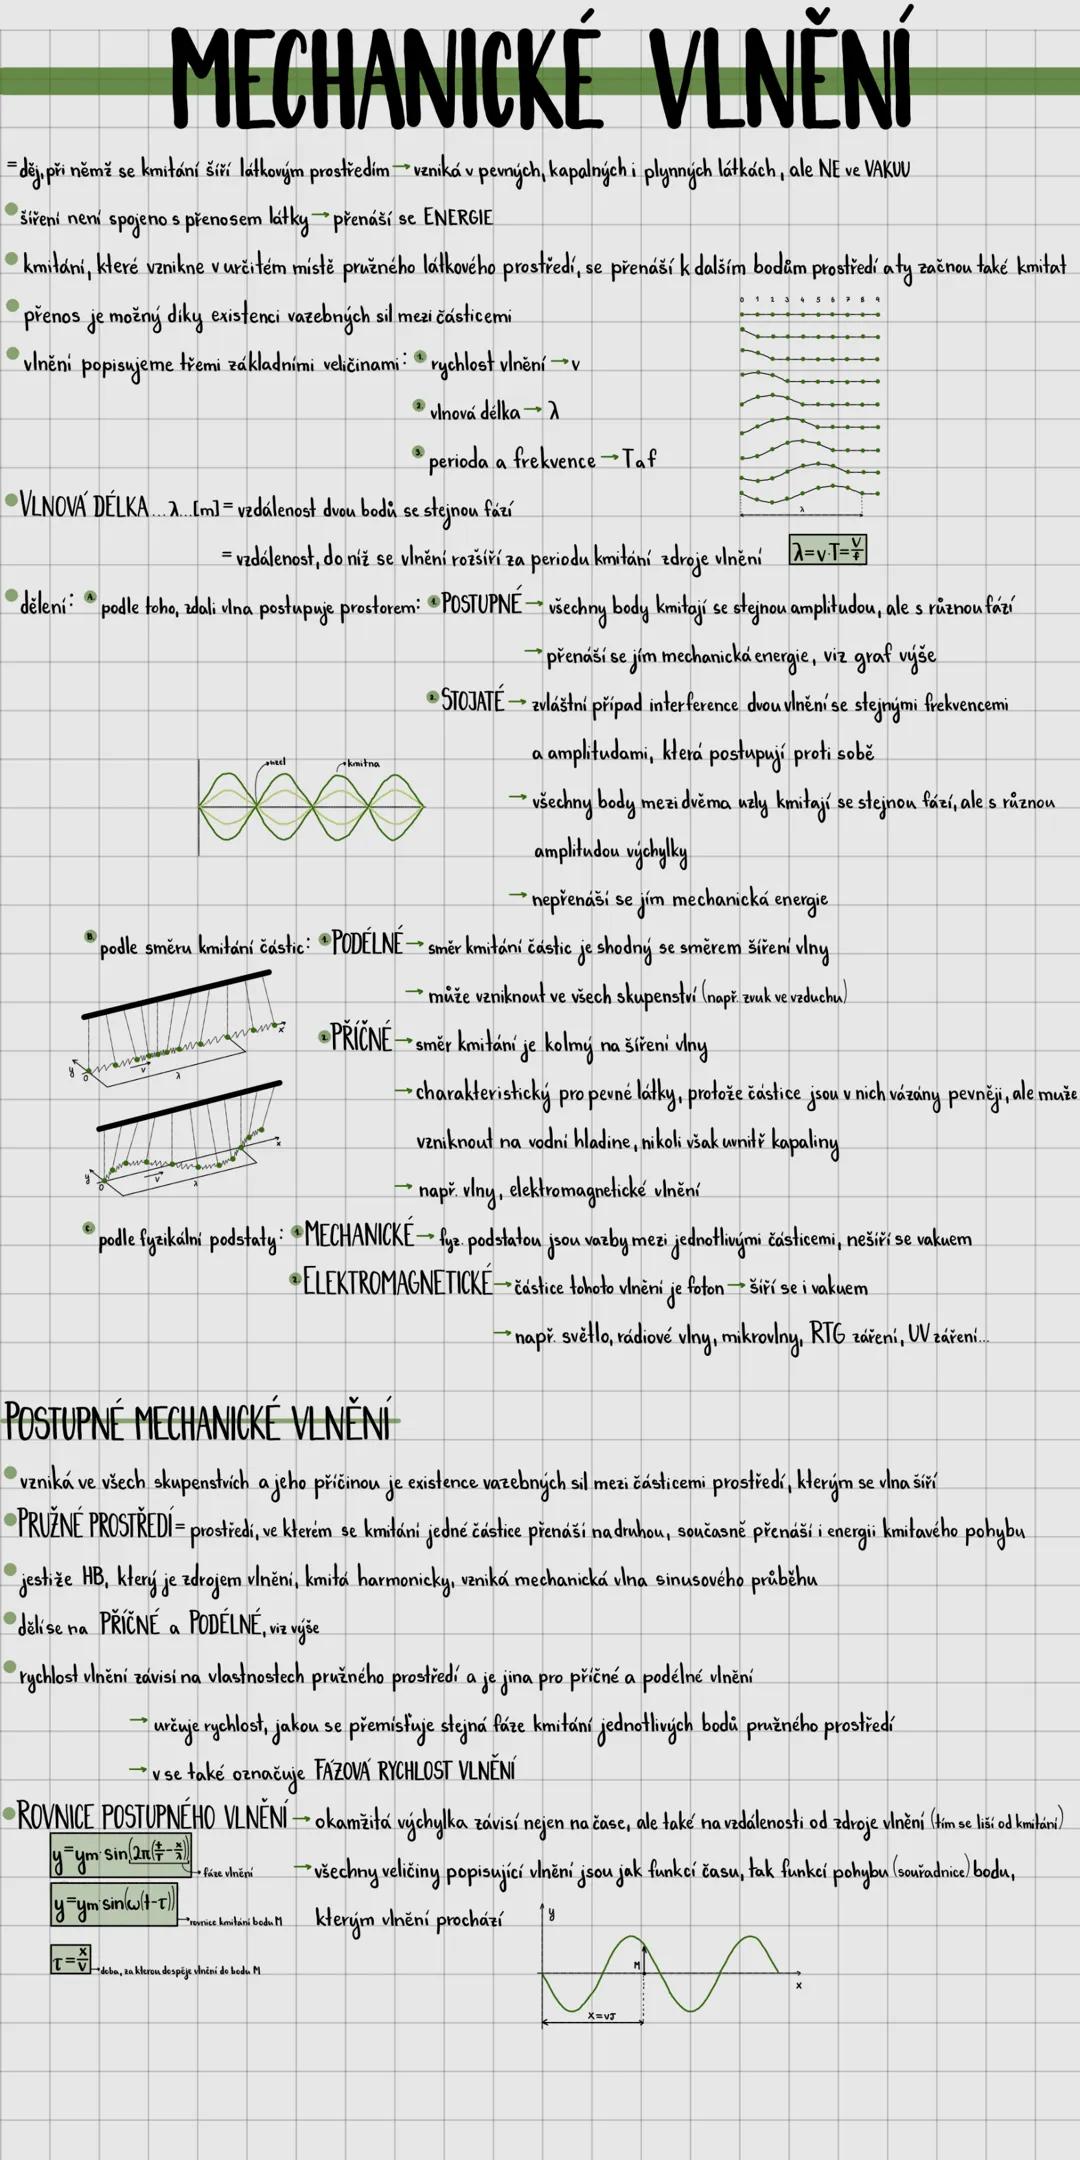 MECHANICKÉ VLNĚNÍ
= děj, při němž se kmitání šíří látkovým prostředím → vzniká v pevných, kapalných i plynných látkách, ale NE ve VAKUU
šíření není spojeno s přenosem látky → přenáší se ENERGIE
kmitání, které vznikne v určitém místě pružného látkového prostředí, se přenáší k dalším bodům prostředí a ty začnou také kmitat
přenos je možný díky existenci vazebných sil mezi částicemi
0 1 2 3 4 5 6 7 8 9
vlnění popisujeme třemi základními veličinami: 1. rychlost vlnění → v
2. vlnová délka → λ
3. perioda a frekvence → T a f
VLNOVÁ DÉLKA...λ...[m] = vzdálenost dvou bodů se stejnou fází
λ
= vzdálenost, do níž se vlnění rozšíří za periodu kmitání zdroje vlnění λ=v·T=v/f
dělení: A. podle toho, zdali vlna postupuje prostorem: 1. POSTUPNÉ → všechny body kmitají se stejnou amplitudou, ale s různou fází
→ přenáší se jím mechanická energie, viz graf výše
2. STOJATÉ → zvláštní případ interference dvou vlnění se stejnými frekvencemi
a amplitudami, která postupují proti sobě
uzel kmitna
→ všechny body mezi dvěma uzly kmitají se stejnou fází, ale s různou
amplitudou výchylky
→ nepřenáší se jím mechanická energie
B. podle směru kmitání částic: 1. PODÉLNÉ → směr kmitání částic je shodný se směrem šíření vlny
→ může vzniknout ve všech skupenství (např. zvuk ve vzduchu)
y 0 v λ x
2. PŘÍČNÉ → směr kmitání je kolmý na šíření vlny
→ charakteristický pro pevné látky, protože částice jsou v nich vázány pevněji, ale muže
vzniknout na vodní hladine, nikoli však uvnitř kapaliny
y 0 v λ x
→ např. vlny, elektromagnetické vlnění
C. podle fyzikální podstaty: 1. MECHANICKÉ → fyz. podstatou jsou vazby mezi jednotlivými částicemi, nešíří se vakuem
2. ELEKTROMAGNETICKÉ → částice tohoto vlnění je foton → šíří se i vakuem
→ např. světlo, rádiové vlny, mikrovlny, RTG záření, UV záření...
POSTUPNÉ MECHANICKÉ VLNĚNÍ
vzniká ve všech skupenstvích a jeho příčinou je existence vazebných sil mezi částicemi prostředí, kterým se vlna šíří
PRUŽNÉ PROSTŘEDÍ = prostředí, ve kterém se kmitání jedné částice přenáší na druhou, současně přenáší i energii kmitavého pohybu
jestiže HB, který je zdrojem vlnění, kmitá harmonicky, vzniká mechanická vlna sinusového průběhu
dělí se na PŘÍČNÉ a PODÉLNÉ, viz výše
rychlost vlnění závisí na vlastnostech pružného prostředí a je jina pro příčné a podélné vlnění
→ určuje rychlost, jakou se přemisťuje stejná fáze kmitání jednotlivých bodů pružného prostředí
→ v se také označuje FÁZOVÁ RYCHLOST VLNĚNÍ
ROVNICE POSTUPNÉHO VLNĚNÍ → okamžitá výchylka závisí nejen na čase, ale také na vzdálenosti od zdroje vlnění (tím se liší od kmitání)
y=ym·sin(2π(t/T-x/λ)) → fáze vlnění
→ všechny veličiny popisující vlnění jsou jak funkcí času, tak funkcí pohybu (souřadnice) bodu,
kterým vlnění prochází
y=ym·sin(ω(t-τ)) → rovnice kmitání bodu M
τ=x/v → doba, za kterou dospěje vlnění do bodu M
y
M
x
x=vτ